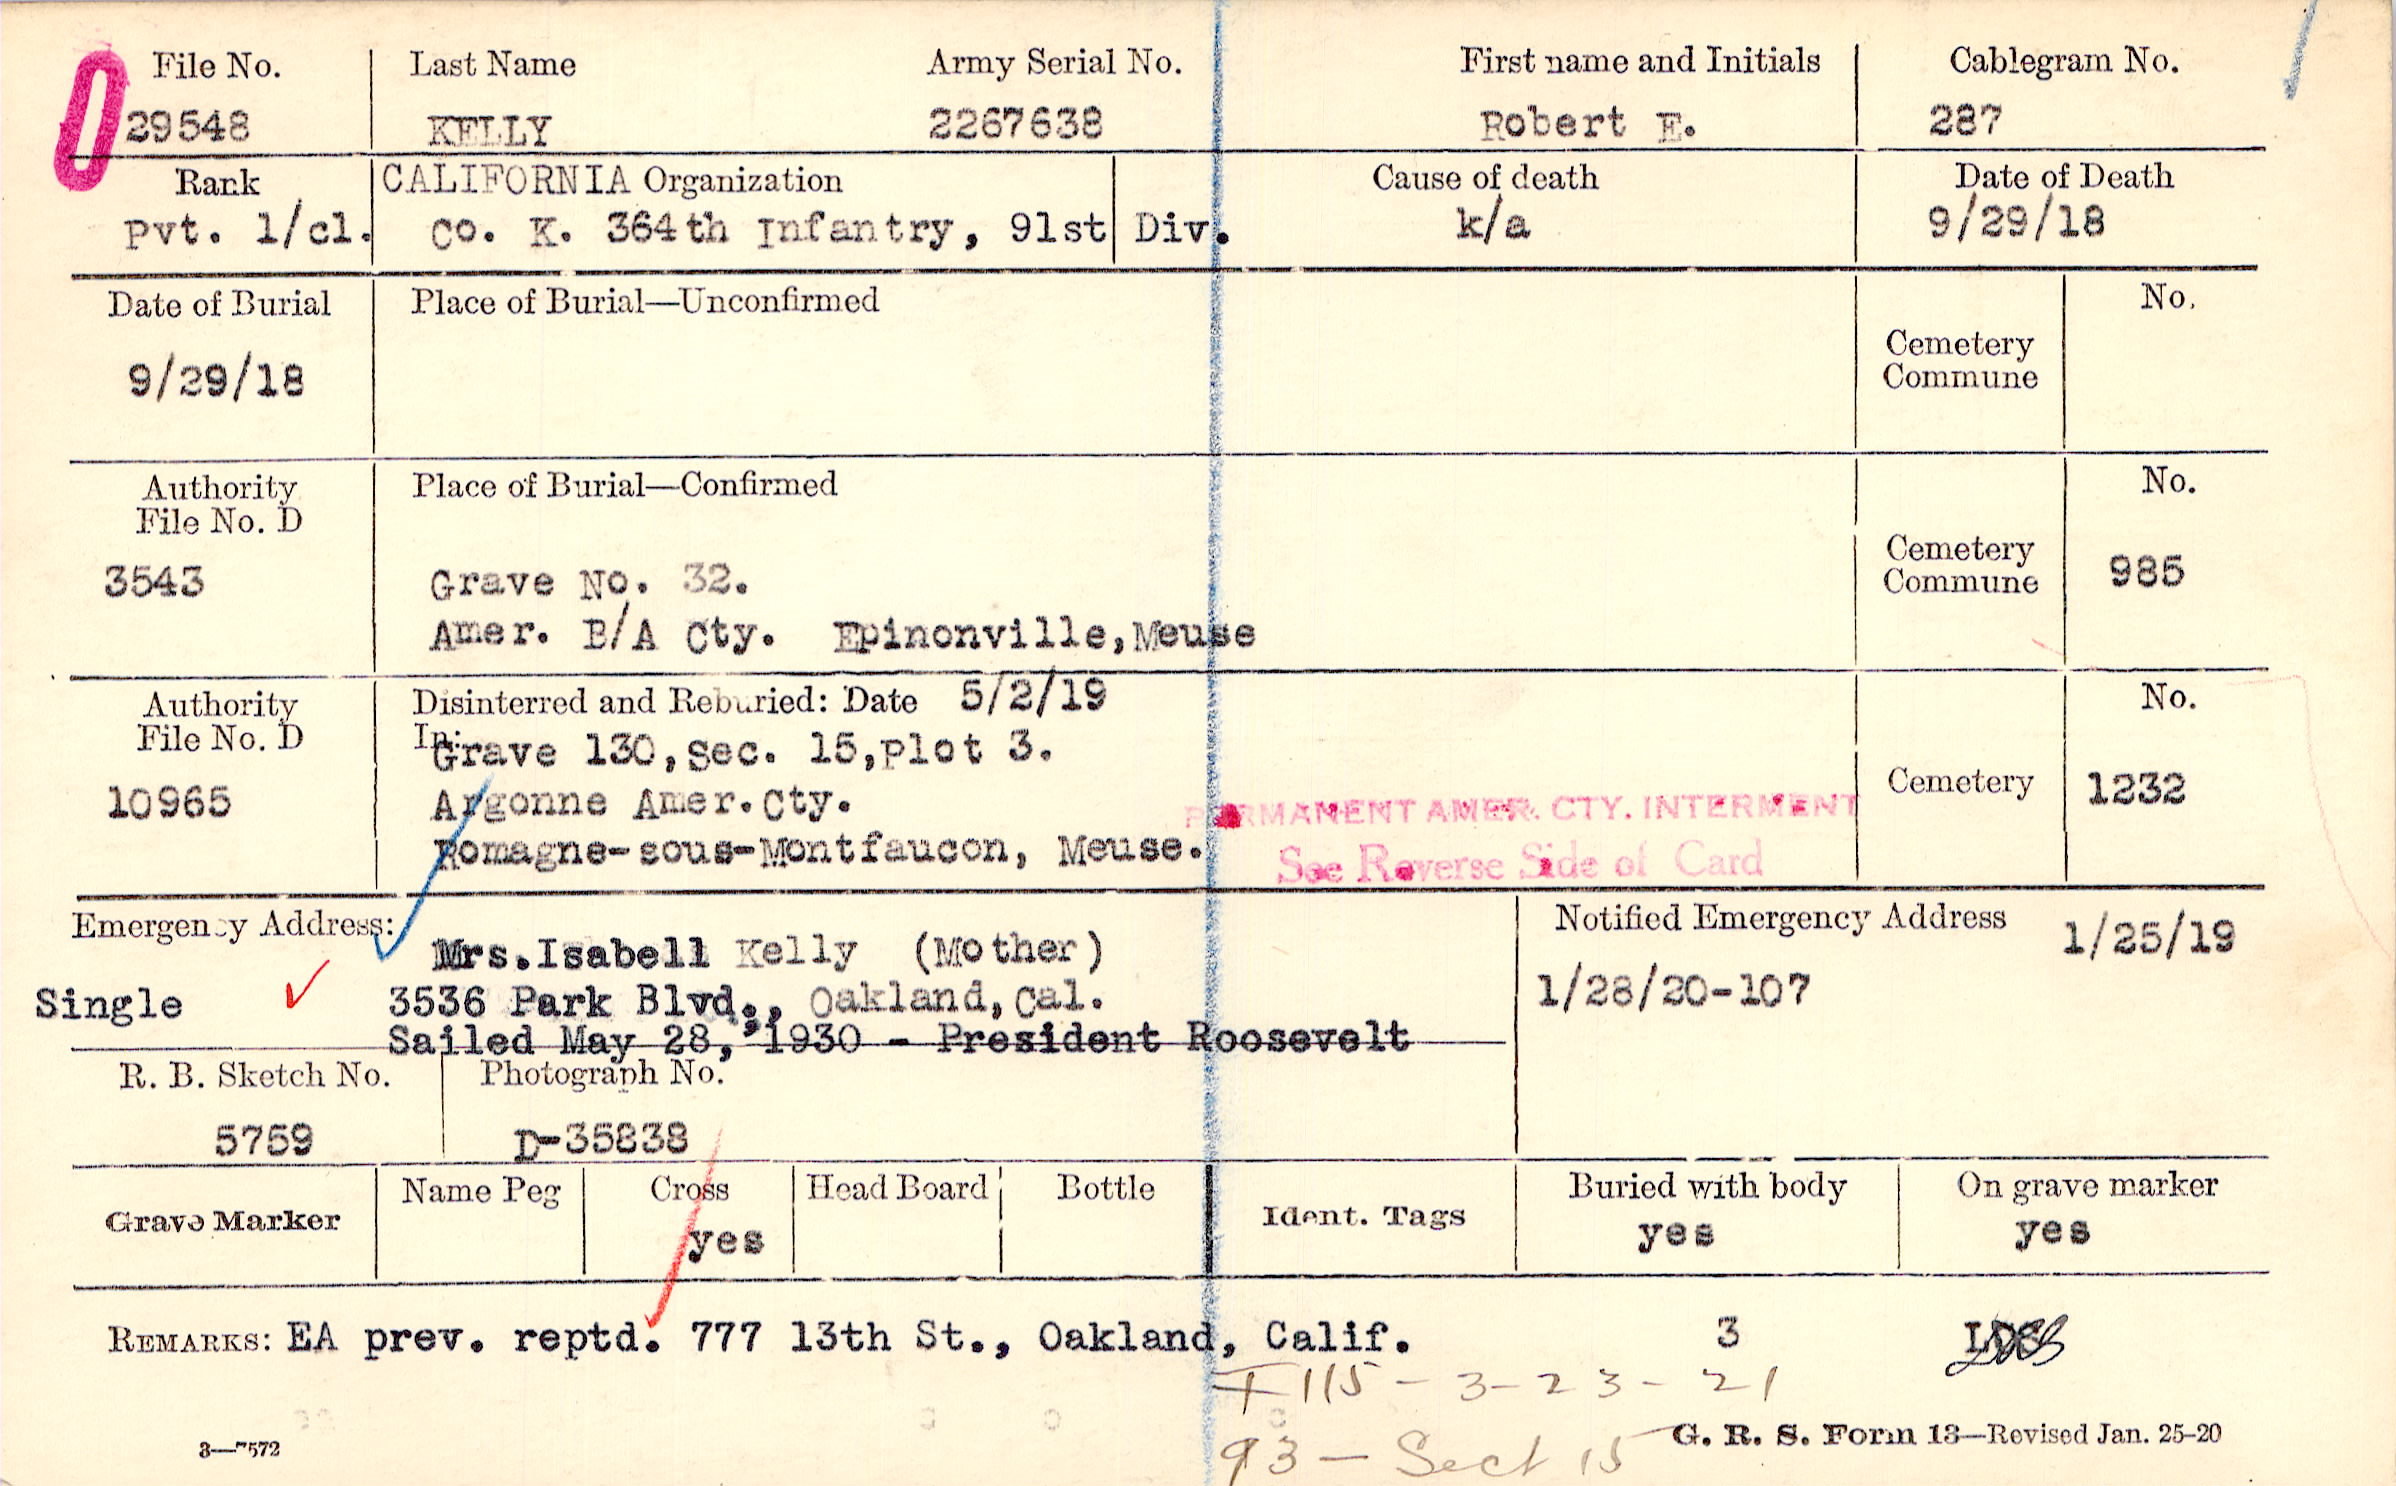 File No. Last Name Army Serial No. First name and Initials Cablegram No.
29548 KELLY 2267638 Robert E. 287
Rank CALIFORNIA Organization Cause of death Date of Death
Pvt. 1/cl. Co. K. 364th Infantry, 91st Div. k/a 9/29/18
Date of Burial Place of Burial—Unconfirmed No.
Cemetery
Commune
9/29/18
Authority Place of Burial—Confirmed No.
File No. D
Cemetery
3543 Grave No. 32. Commune 985
Amer. B/A Cty. Epinonville,Meuse
Authority Disinterred and Reburied: Date 5/2/19 No.
File No. D In:
Grave 130,Sec. 15,plot 3.
10965 Argonne Amer.Cty. Cemetery 1232
PERMANENT AMER. CTY. INTERMENT
Romagne-sous-Montfaucon, Meuse.
See Reverse Side of Card
Emergency Address: Notified Emergency Address 1/25/19
Mrs.Isabell Kelly (Mother)
Single 3536 Park Blvd., Oakland,Cal. 1/28/20-107
Sailed May 28, 1930 - President Roosevelt
R. B. Sketch No. Photograph No.
5759 D-35838
Grave Marker Name Peg Cross Head Board Bottle Ident. Tags Buried with body On grave marker
yes yes yes
REMARKS: EA prev. reptd. 777 13th St., Oakland, Calif. 3
115 - 3-23-21
3—7572 G. R. S. Form 13—Revised Jan. 25-20
93 - Sect 15